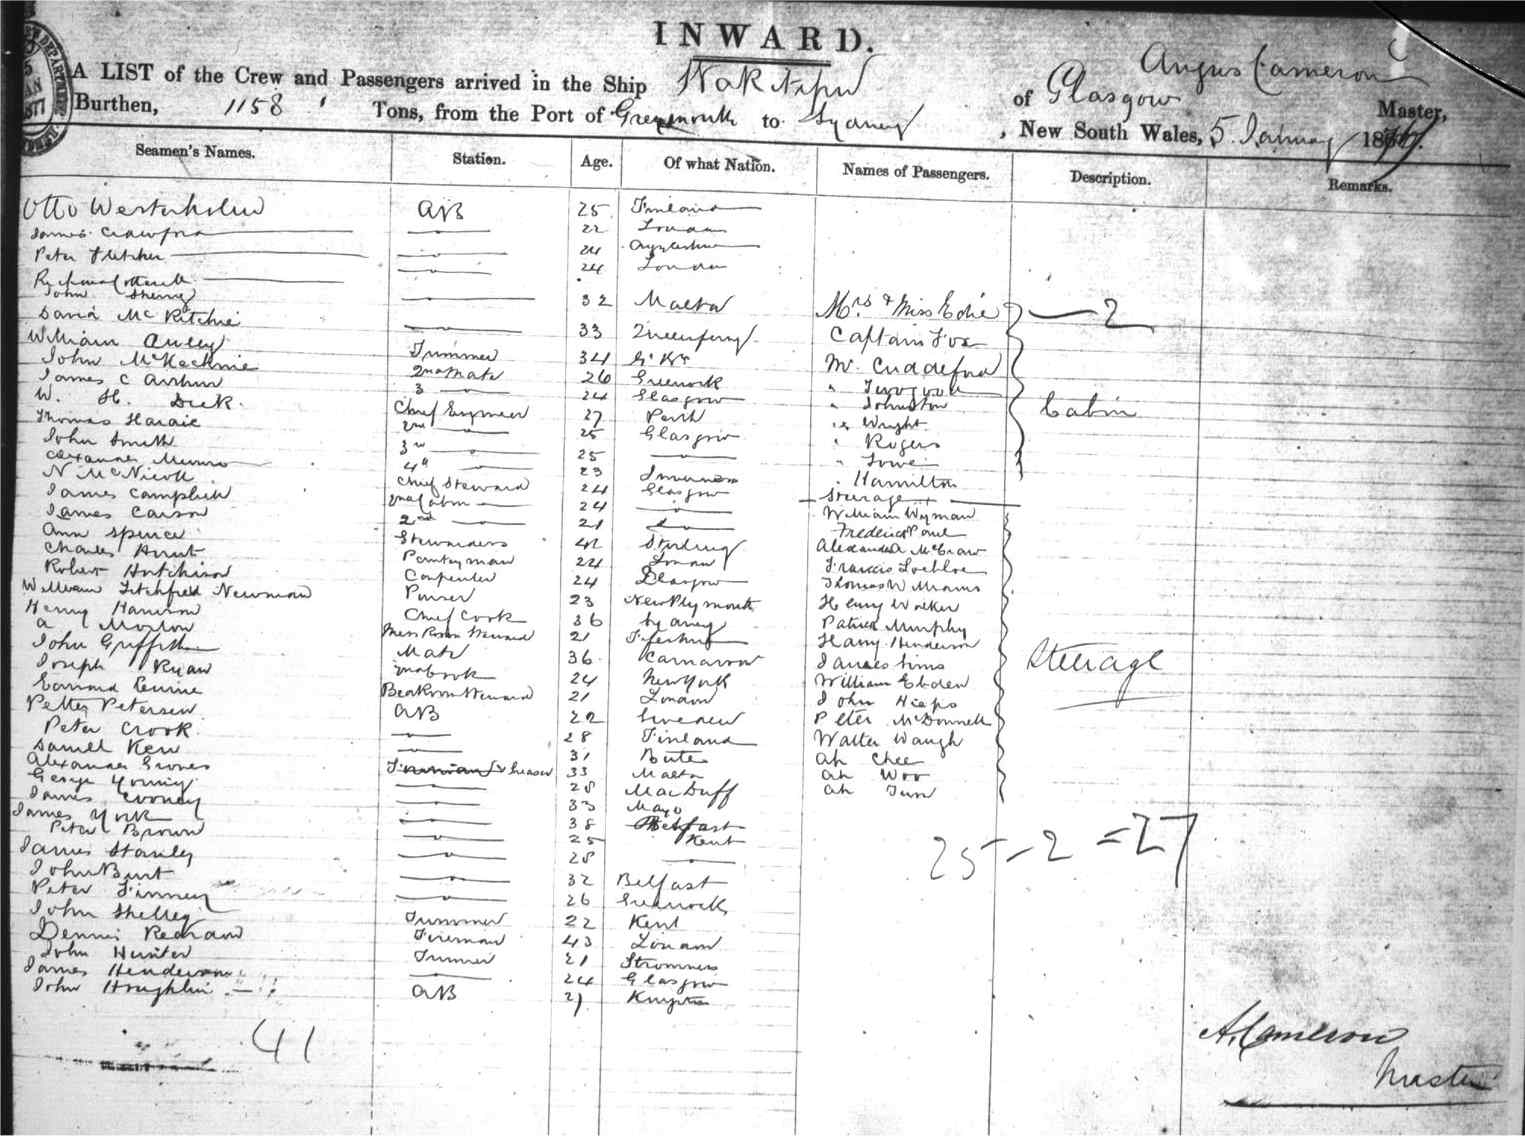 INWARD.
A LIST of the Crew and Passengers arrived in the Ship Wakatipu of Glasgow Angus Cameron Master,
Burthen, 1158 Tons, from the Port of Greymouth to Sydney, New South Wales, 5 January 1877.
Seamen's Names. Station. Age. Of what Nation. Names of Passengers. Description. Remarks.
Otto Westerholm AB 25 Finland
James Crawford 22 London
Peter Fletcher 24 Ayrshire
24 London
John Sherry 32 Malta Mrs & Miss Edie 2
David McRitchie 33 Queensferry Captain Fox
William Trimmer 34 Mr.
John McKechnie 2nd Mate 26 Greenock
James C Arthur 3 24 Glasgow " Johnston Cabin
W. H. Dick Chief Engineer 27 Perth " Wright
Thomas Hardie 2nd 25 Glasgow " Rogers
John Smith 3rd 25 " Lowe
Alexander Munro 4th 23 Inverness " Hamilton
N McNicol Chief Steward 24 Glasgow Steerage
James Campbell 2nd Cabin 24 William Wyman
James Carson 2nd 21 Frederick Paul
Ann Spence Stewardess 42 Stirling Alexander McGraw
Charles Hunt Pantryman 22 London Francis
Robert Hutchison Carpenter 24 Glasgow Thomas Williams
William Litchfield Newman Purser 23 New Plymouth Henry Walker
Henry Harrison Chief Cook 36 Sydney Patrick Murphy
A Morton Mess Room Steward 21 Harry Henderson
John Griffith Mate 36 Carnarvon James Sims Steerage
Joseph Ryan 2nd Cook 24 New York William Ebden
Edward Steward 21 London John Hieps
Petter Petersen AB 22 Sweden Peter McDonnell
Peter Crook 28 Finland Walter Waugh
Samuel Kerr 31 Bute Ah Chee
Alexander Groves & Greaser 33 Malta Ah Woo
George Young 28 MacDuff Ah
James Cooney 33 Mayo
James York 38 Belfast
Peter Brown 25 Kent
James Stanley 28
25 - 2 = 27
John Burt 32 Belfast
Peter Finney 26 Greenock
John Shelley Trimmer 22 Kent
Dennis Fireman 43 London
John Hunter Trimmer 21 Stromness
James Henderson 24 Glasgow
John Houghlin AB 21
41
A. Cameron
Master